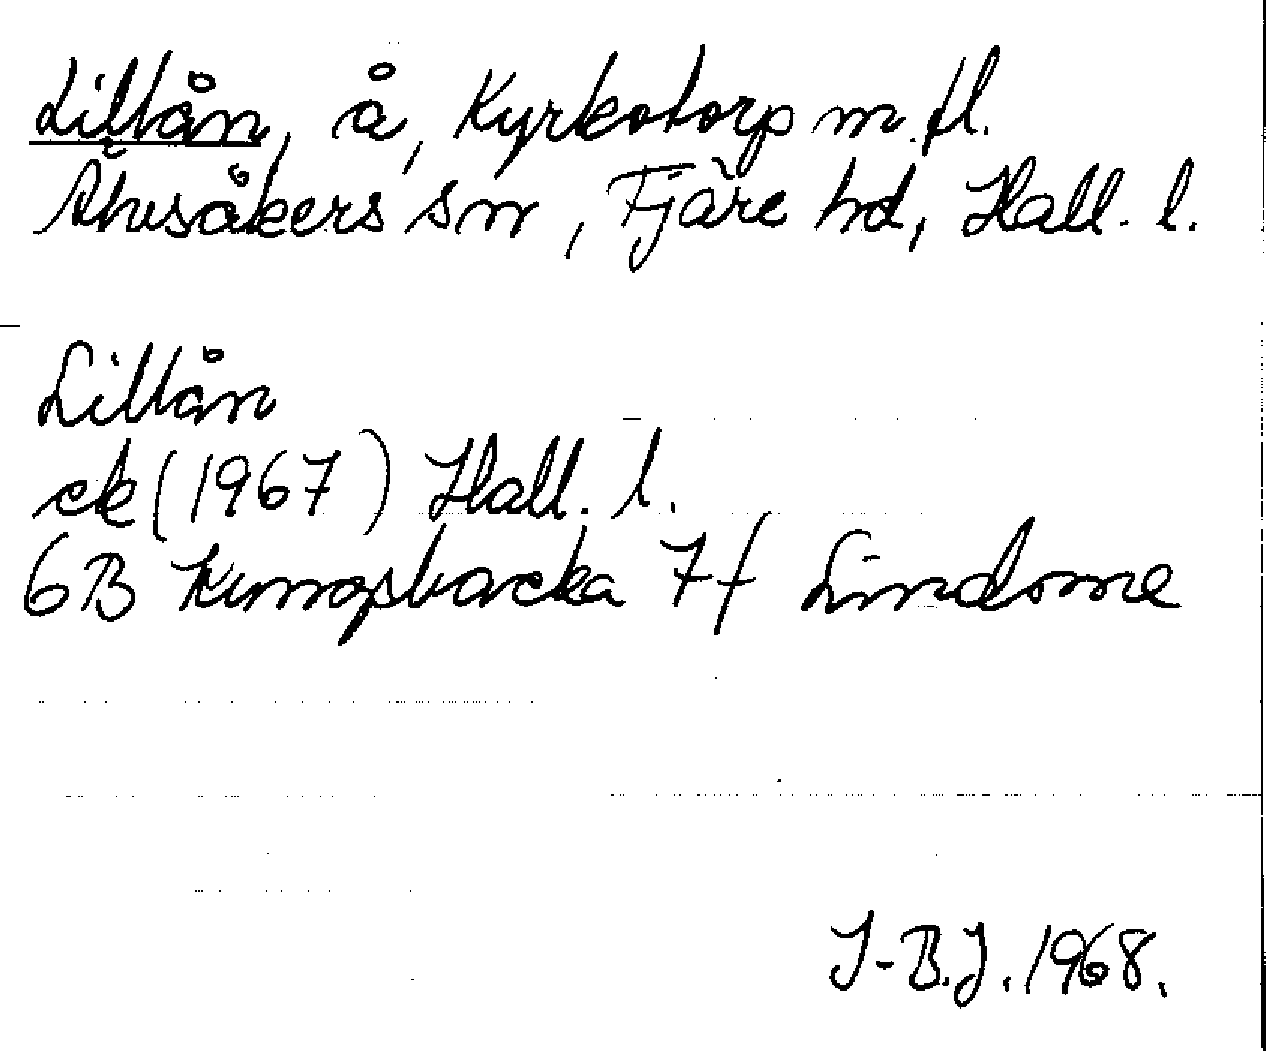 Lillån, å, Kyrkotorp m.fl.
Älvsåkers sn, Fjäre hd, Hall. l.
Lillån
ek (1967) Hall. l.
6B Kungsbacka 7f Lindome
I-B.J. 1968.